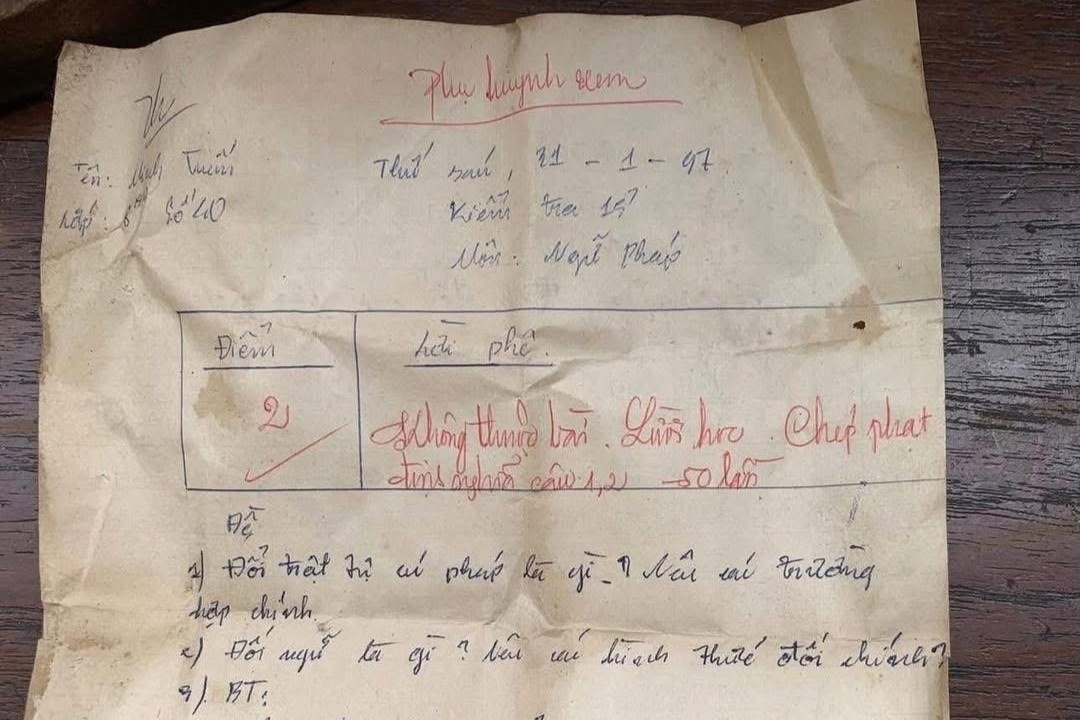 Phụ huynh xem
Tên: Minh Tuấn
Thứ sáu, 31 - 1 - 97
Lớp: 6 Số 40
Kiểm tra 15'
Môn: Ngữ Pháp
Điểm
Lời phê.
2
Không thuộc bài. Lười học. Chép phạt
định nghĩa câu 1, 2 50 lần
Đề
1) Đổi trật tự cú pháp là gì? Nêu các trường
hợp chính.
2) Đối ngữ là gì? Nêu các hình thức đối chính?
3). BT: